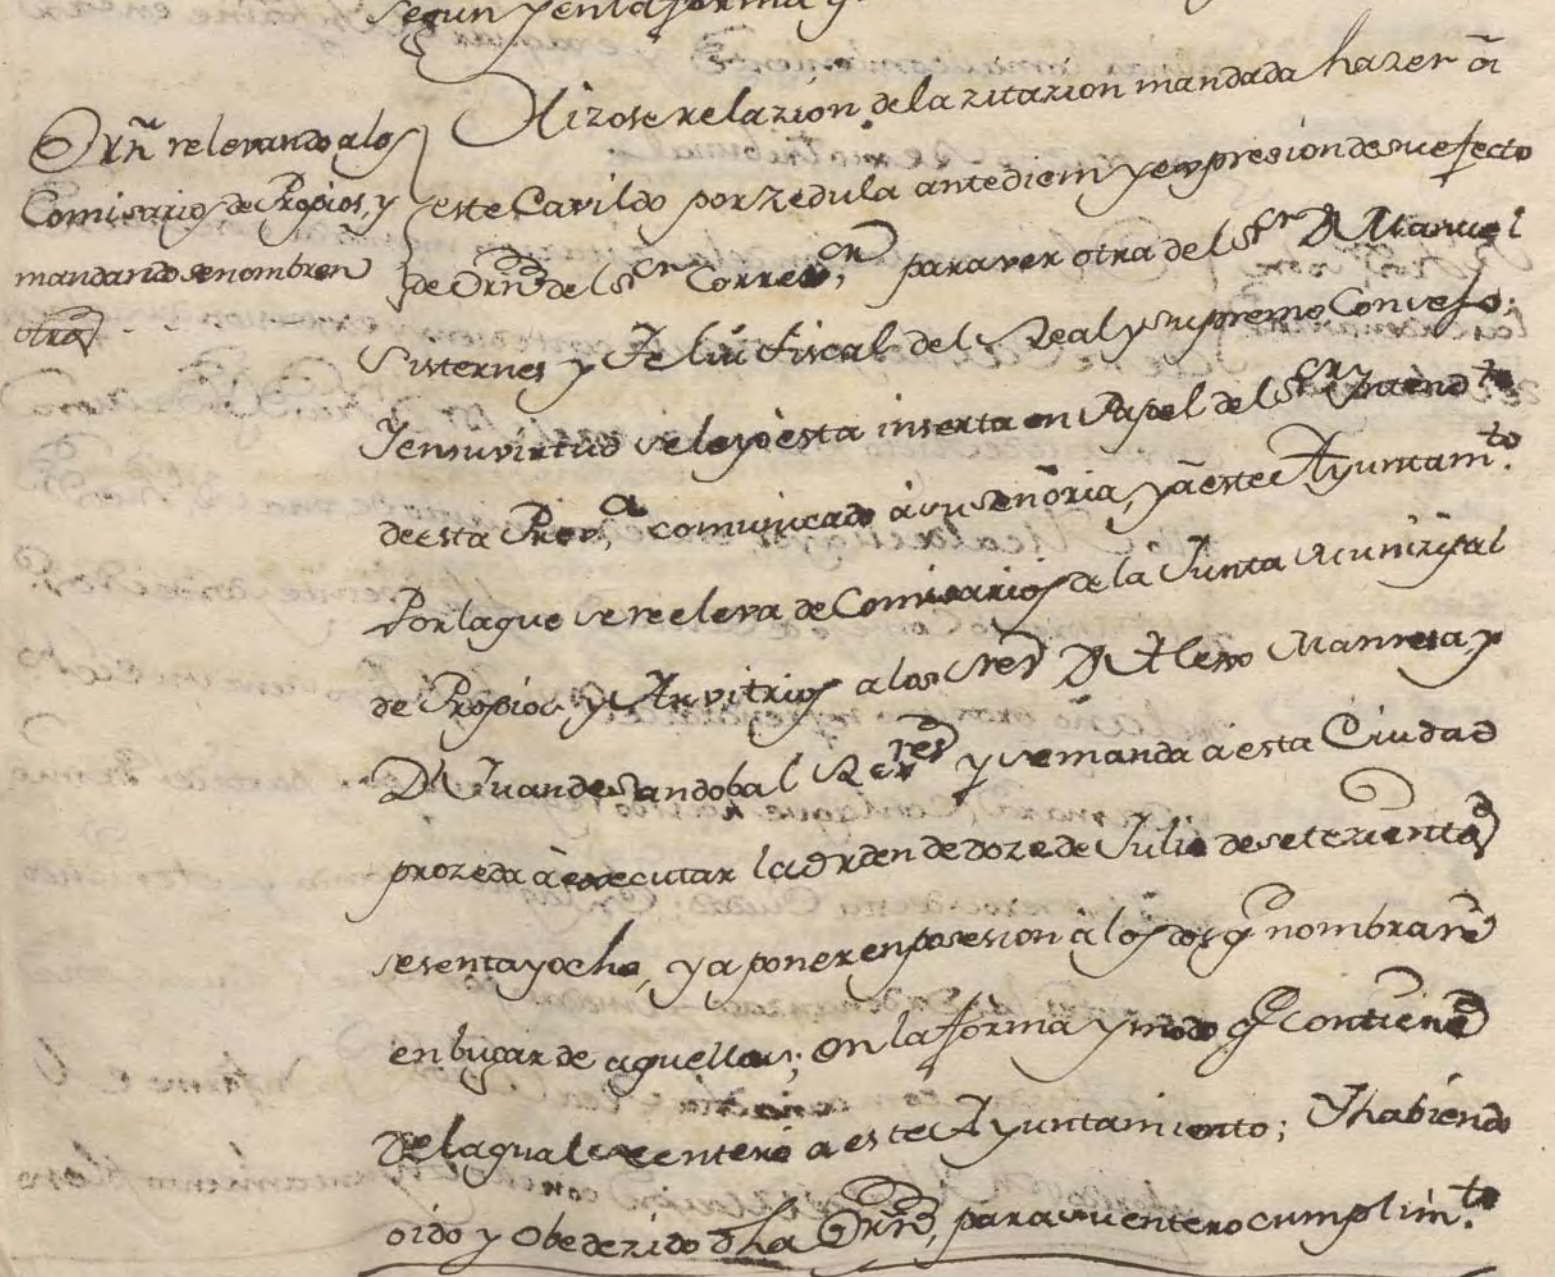 segun y en la forma q
Hizose relazion de la zitazion mandada hazer oi
Orñ relevando a los
Comisarios de Propios, y
mandando se nombren
otros
este Cavildo por zedula antediem y expresion de su efecto
de Orñ del Sor Correxor, para ver otra del Sor Dn Manuel
Sisternes y Feliu fiscal del Real y supremo Consejo;
Y en su virtud se leyò èsta inserta en Papel del Sor Yntendte
de esta Prova, comunicado à su señoria, y à este Ayuntamto.
Por la que se releva de Comisarios de la Junta Municipal
de Propios y Arvitrios a los Sres Dn Alexo Manresa, y
Dn Juan de Sandobal Rexres y se manda a esta Ciudad
prozeda à executar la Orden de doze de Julio de setezientos
sesenta y ocho, y a poner en posesion à los dos q nombrare
en lugar de aquellos; en la forma y modo q contiene
De la qual se enterò a este Ayuntamiento; Y habiendo
oido y Obedezido dha Orñ, para su entero cumplimto.